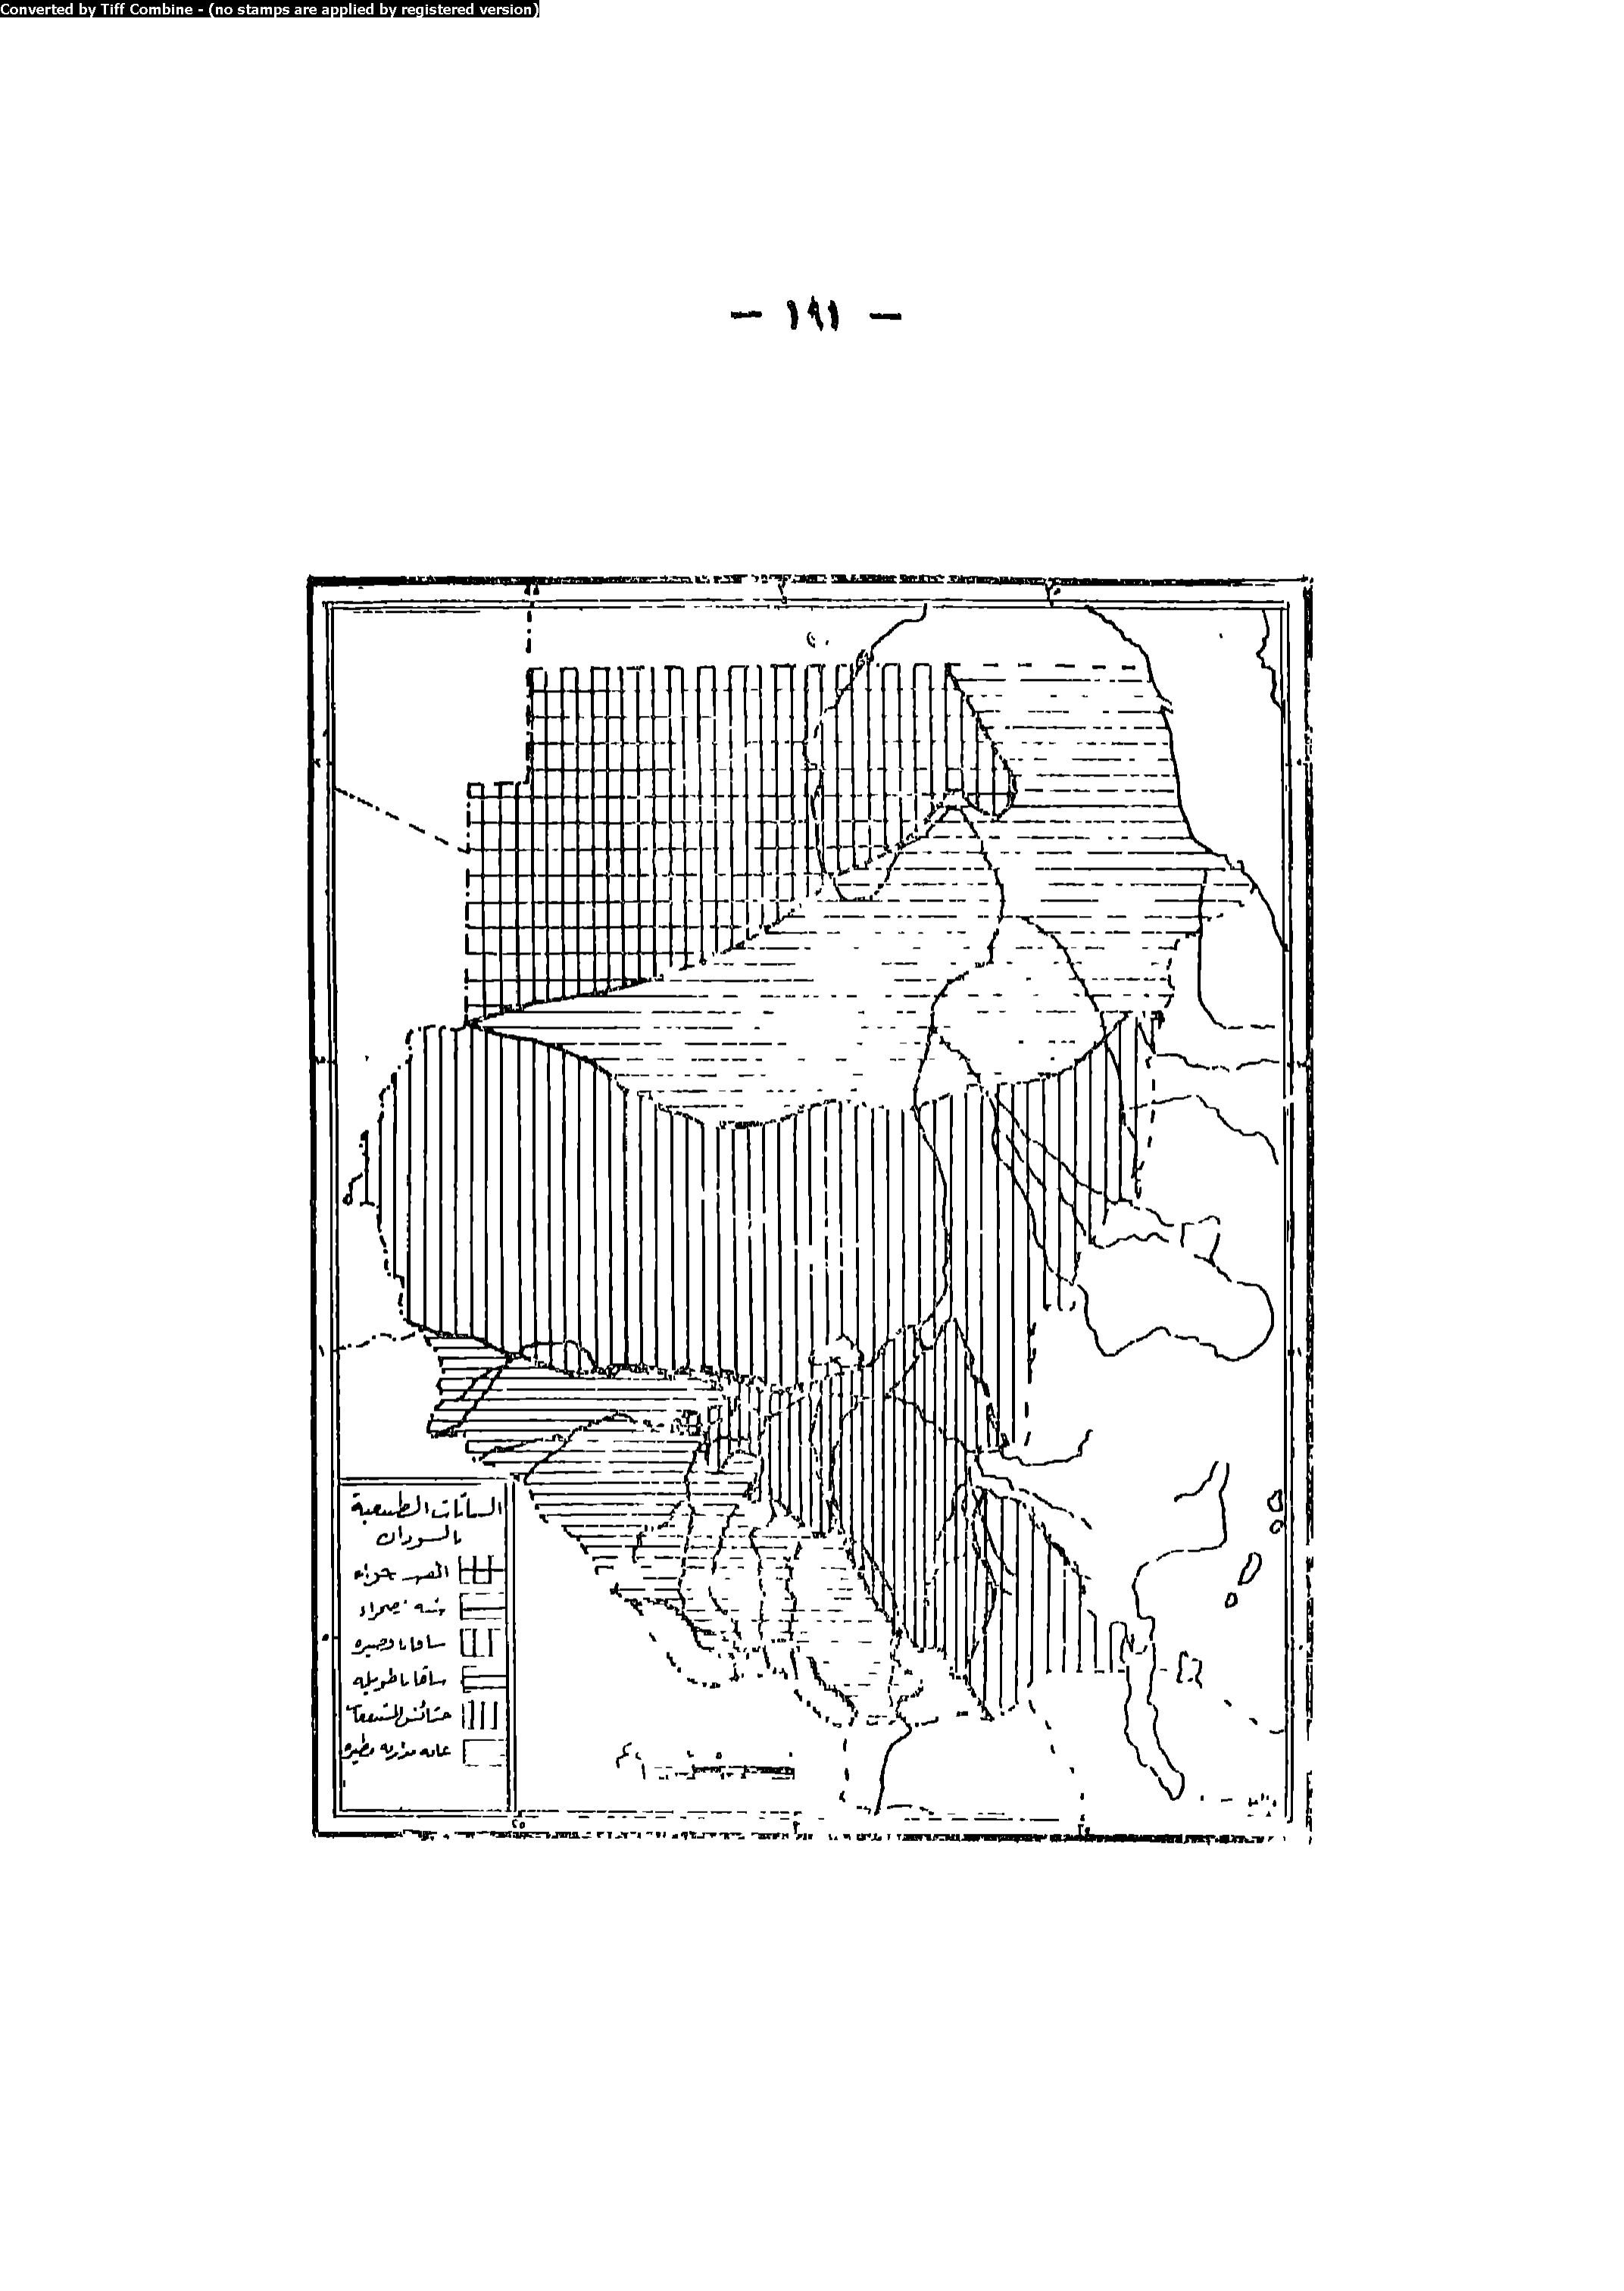 Converted by Tiff Combine - (no stamps are applied by registered version)
— ١٩١ —
النباتات الطبيعية
بالسودان
الصحراء
شبه صحراء
سافانا قصيرة
سافانا طويله
حشائش المستنقعات
غابه مداريه مطيره